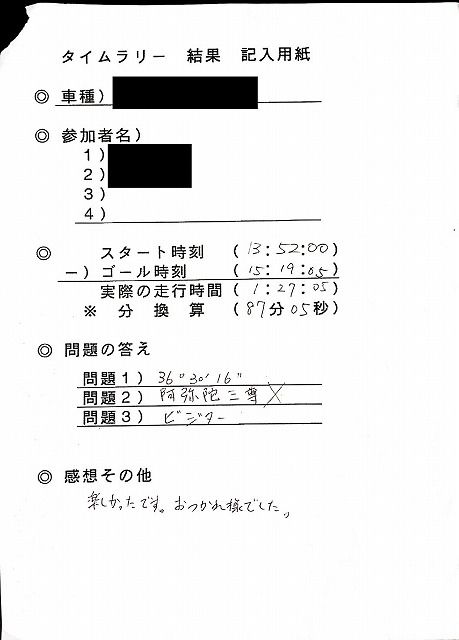 タイムラリー 結果 記入用紙
◎ 車種)
◎ 参加者名)
1)
2)
3)
4)
◎ スタート時刻 (13:52:00)
－) ゴール時刻 (15:19:05)
実際の走行時間 (1:27:05)
※ 分 換 算 (87分05秒)
◎ 問題の答え
問題1) 36°30′16″
問題2) 阿弥陀三尊 ×
問題3) ビジター
◎ 感想その他
楽しかったです。おつかれ様でした。